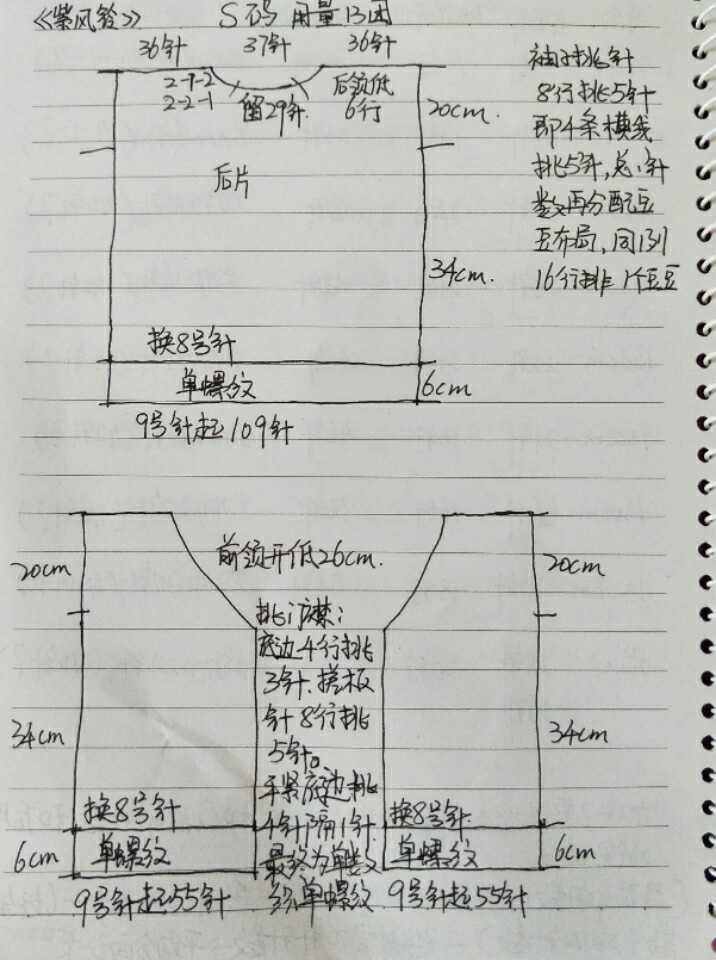 《紫风铃》 S码 用量13团
36针 37针 36针
2-7-2
2-2-1
留29针
后领低
6行
20cm.
后片
34cm.
换8号针
单螺纹
6cm
9号针起109针
袖子挑针
8行挑5针
即4条横线
挑5针,总针
数再分配豆
豆布局,同1列
16行排1个豆豆
前领开低26cm.
20cm
20cm
挑门襟:
底边4行挑
3针.搓板
针8行挑
5针。
平紧底边挑
4针隔1针
最终为单数
织单螺纹.
34cm
34cm
换8号针
换8号针
单螺纹
单螺纹
6cm
6cm
9号针起55针
9号针起55针